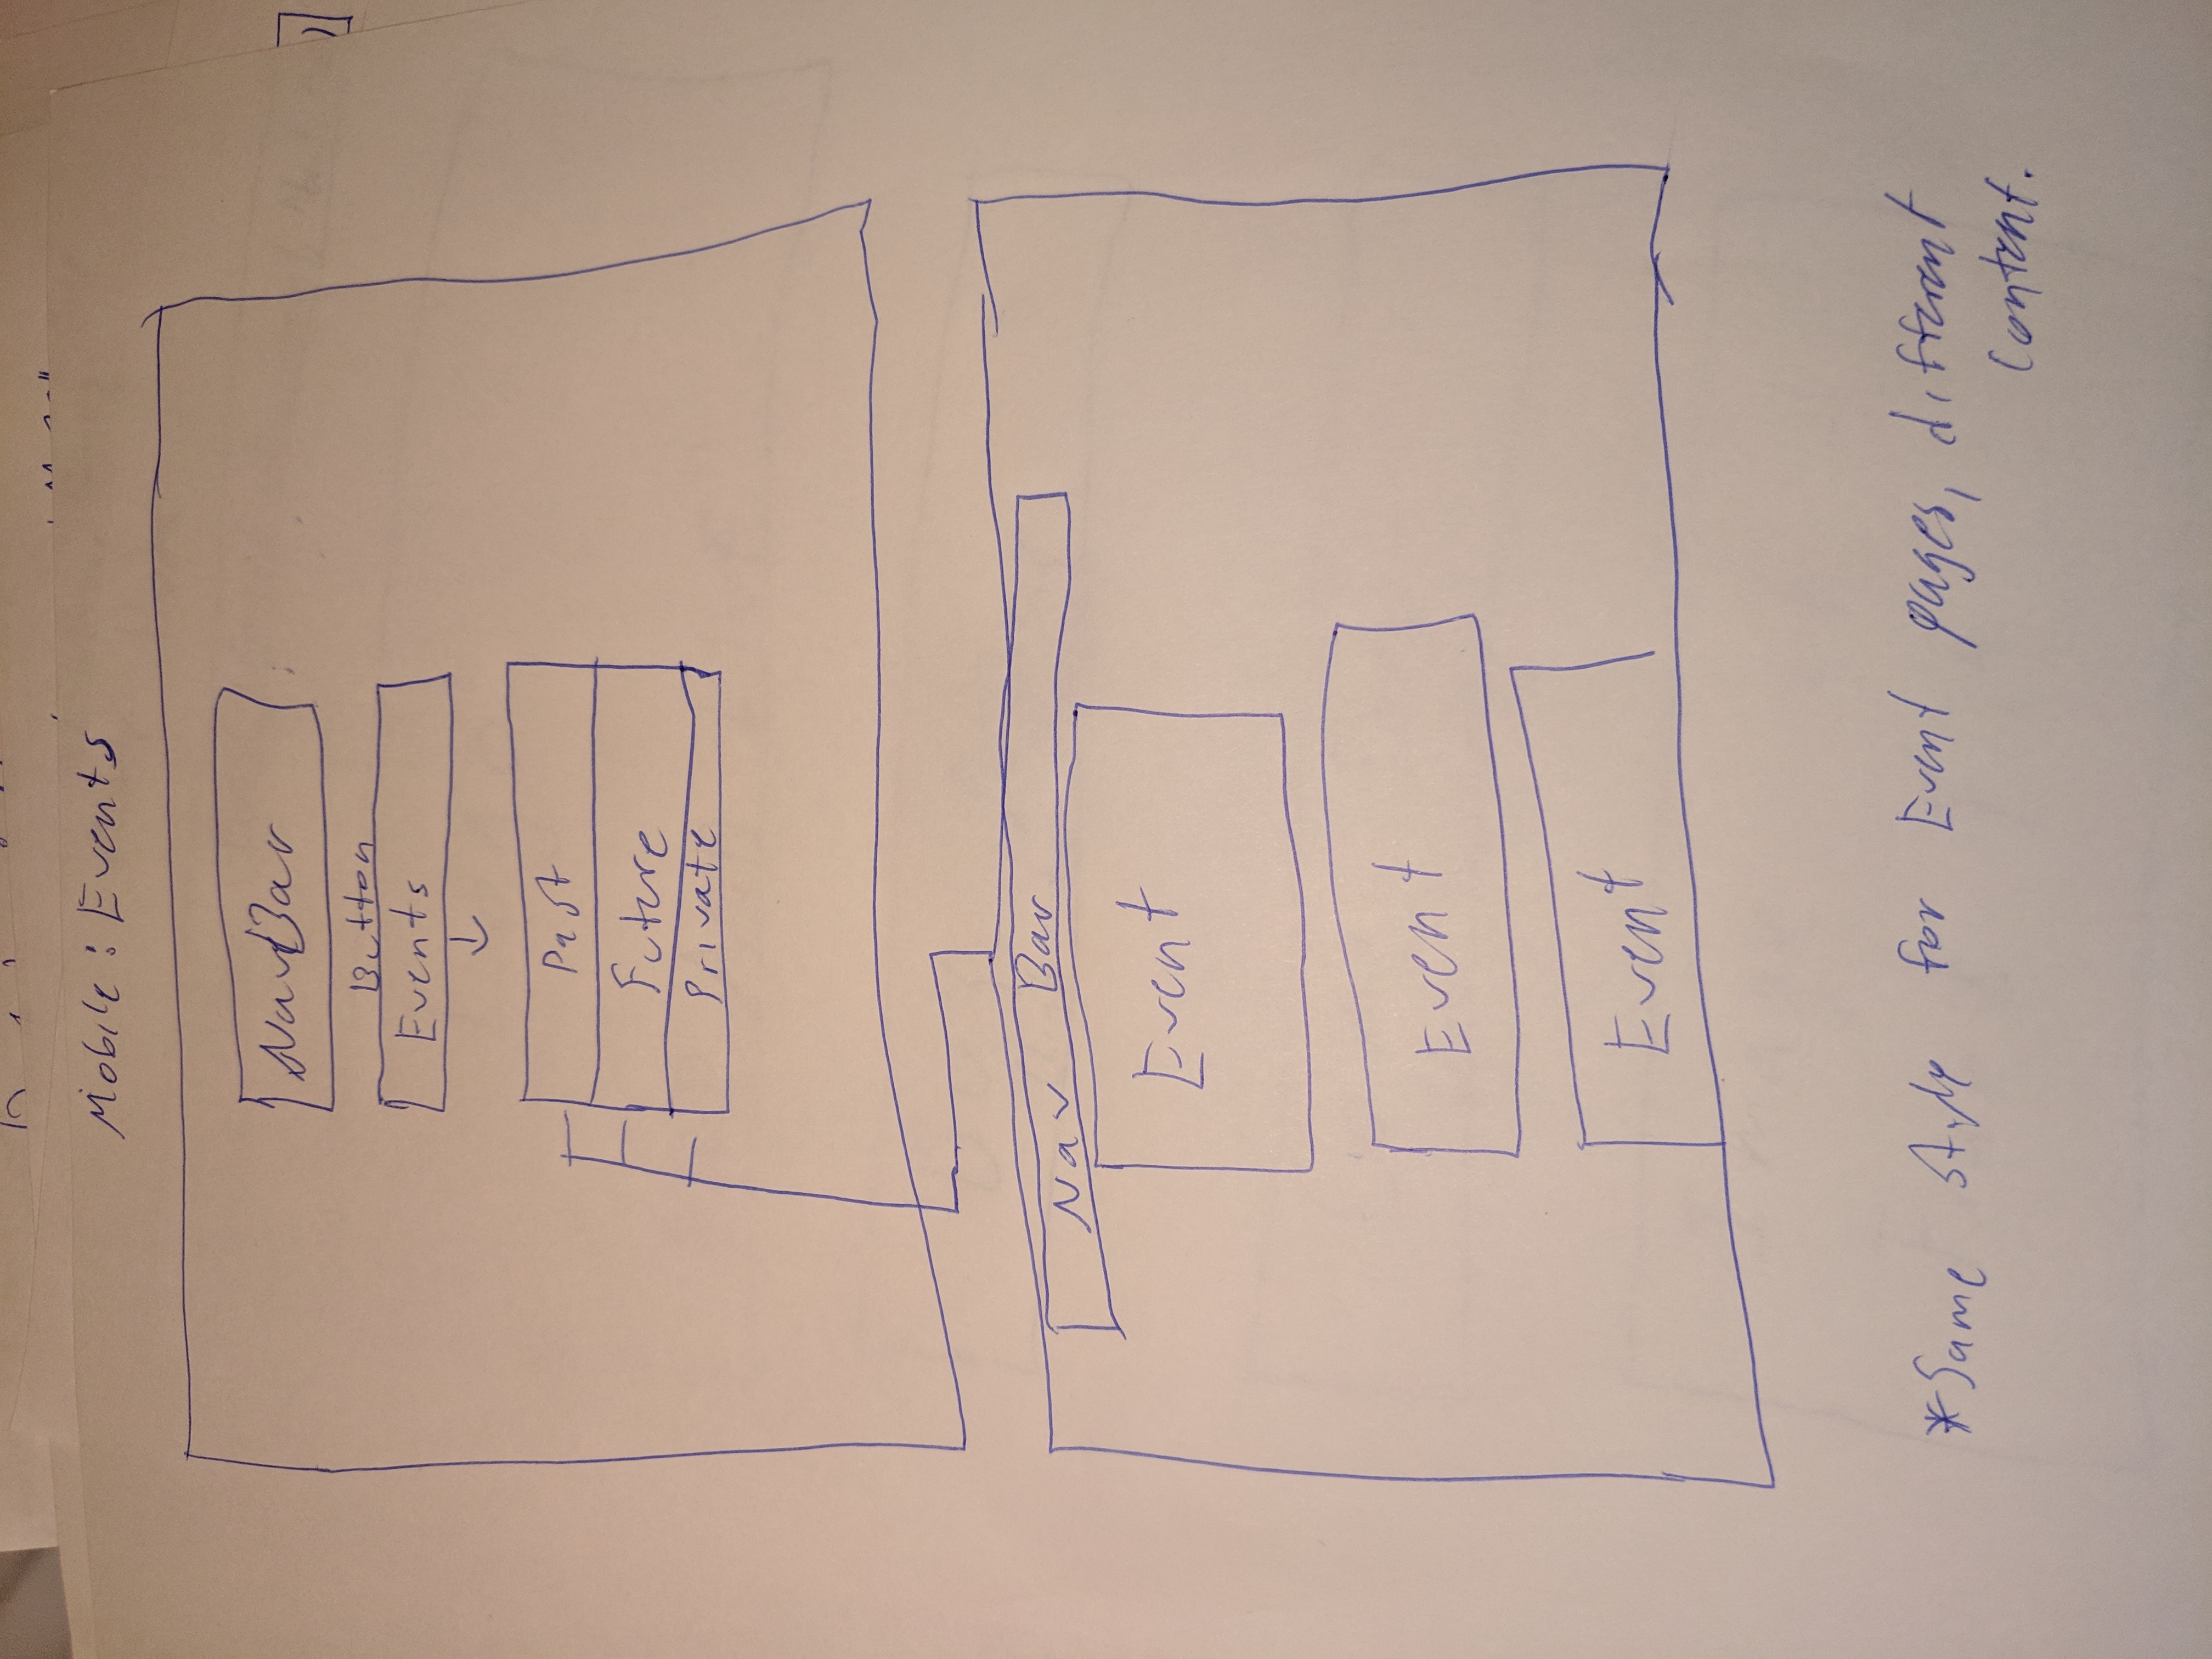 Mobile: Events
NavBar
Button
Events
Past
Future
Private
Nav Bar
Event
Event
Event
*Same style for Event pages, different
content.